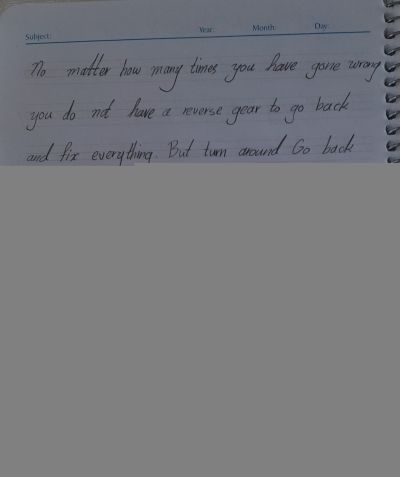 Subject:
Year: Month: Day:
No matter how many times you have gone wrong
you do not have a reverse gear to go back
and fix everything. But turn around Go back